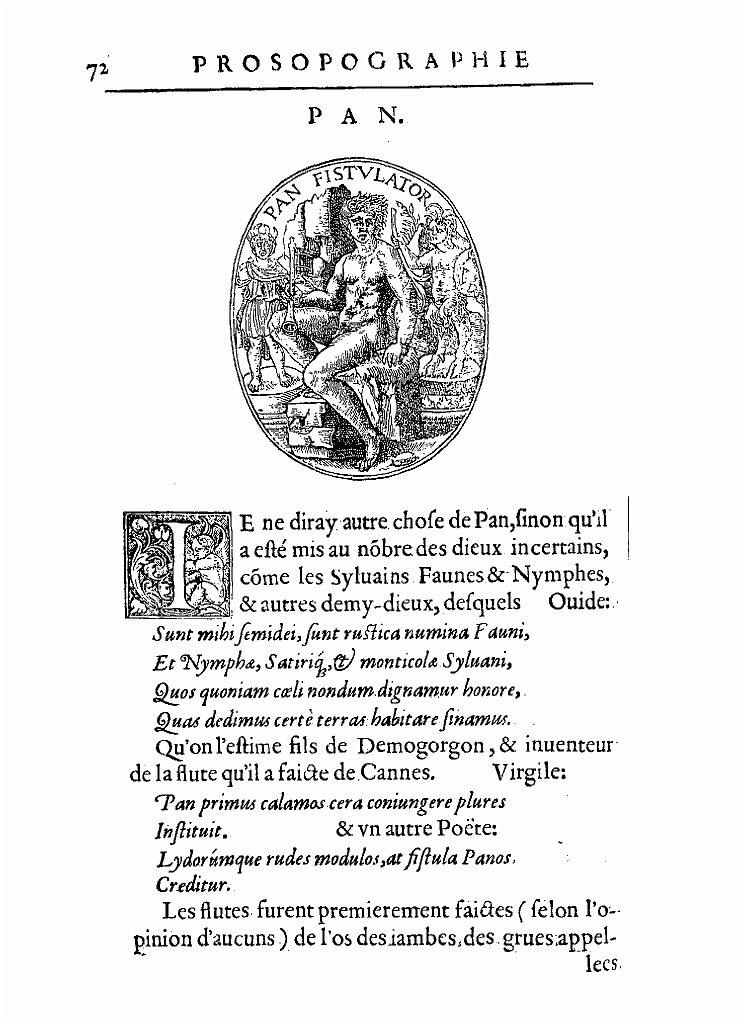 72 PROSOPOGRAPHIE
PAN.
PAN FISTVLATOR
IE ne diray autre choſe de Pan,ſinon qu'il
a eſté mis au nõbre des dieux incertains,
cõme les Syluains Faunes & Nymphes,
& autres demy-dieux, deſquels Ouide:
Sunt mihi ſemidei, ſunt ruſtica numina Fauni,
Et Nymphæ, Satiriq́;, & monticolæ Syluani,
Quos quoniam cœli nondum dignamur honore,
Quas dedimus certè terras habitare ſinamus.
Qu'on l'eſtime fils de Demogorgon, & inuenteur
de la flute qu'il a faicte de Cannes. Virgile:
Pan primus calamos cera coniungere plures
Inſtituit. & vn autre Poëte:
Lydorúmque rudes modulos, at fiſtula Panos,
Creditur.
Les flutes furent premierement faictes ( ſelon l'o-
pinion d'aucuns ) de l'os des iambes, des grues appel-
lees.